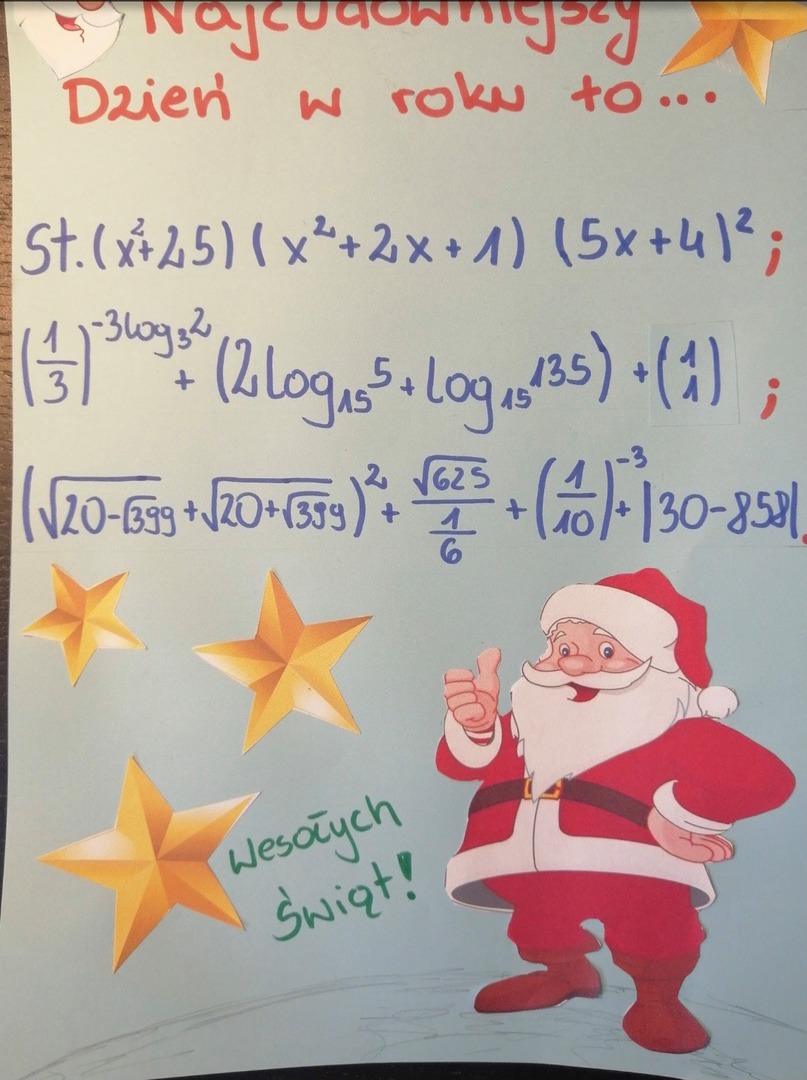 Najcudowniejszy
Dzień w roku to...
St.(x²+25)(x²+2x+1) (5x+4)²;
(1/3)^(-3log₃2) + (2log₁₅5+log₁₅135) + (1 1) ;
(√(20-√399)+√(20+√399))² + √625/(1/6) + (1/10)^(-3) + |30-858|.
Wesołych
Świąt!